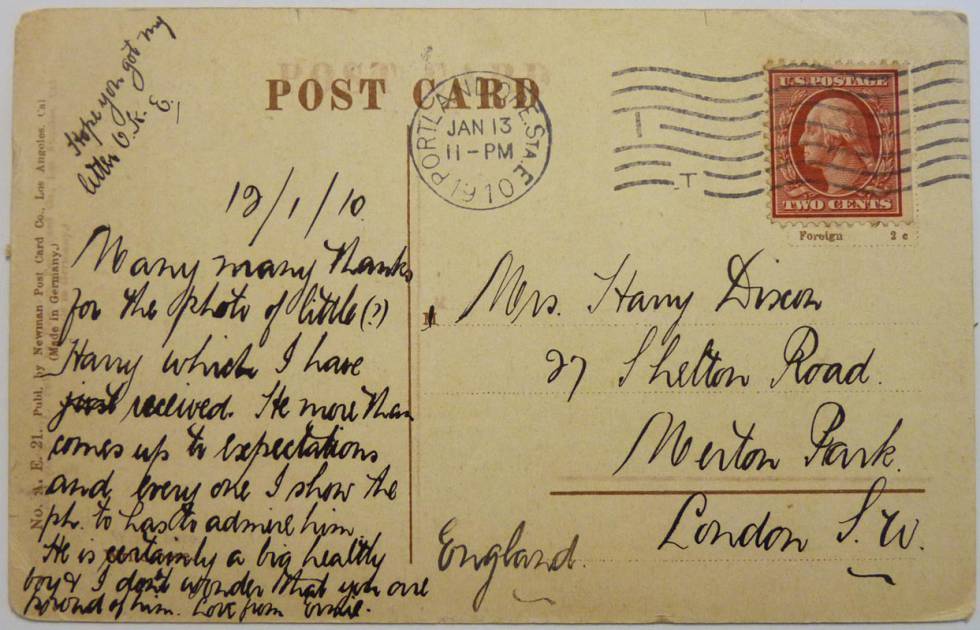 Hope you got my
letter O.K. E.
POST CARD
PORTLAND, ORE. STA. E
JAN 13
11-PM
1910
U.S. POSTAGE
TWO CENTS
Foreign 2 c
No. A. E. 21. Publ. by Newman Post Card Co. Los Angeles, Cal
(Made in Germany.)
12/1/10.
Many many thanks
for the photo of little (?)
Harry which I have
just received. He more than
comes up to expectations
and every one I show the
ph. to has to admire him
He is certainly a big healthy
boy & I don't wonder that you are
proud of him. Love from Ernie.
Mrs. Harry Dixon
27 Shelton Road.
Merton Park.
London S.W.
England.